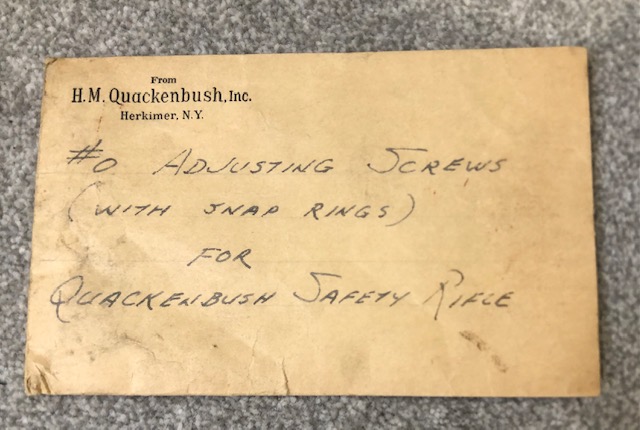 From
H.M. Quackenbush, Inc.
Herkimer, N.Y.
#0 ADJUSTING SCREWS
(WITH SNAP RINGS)
FOR
QUACKENBUSH SAFETY RIFLE